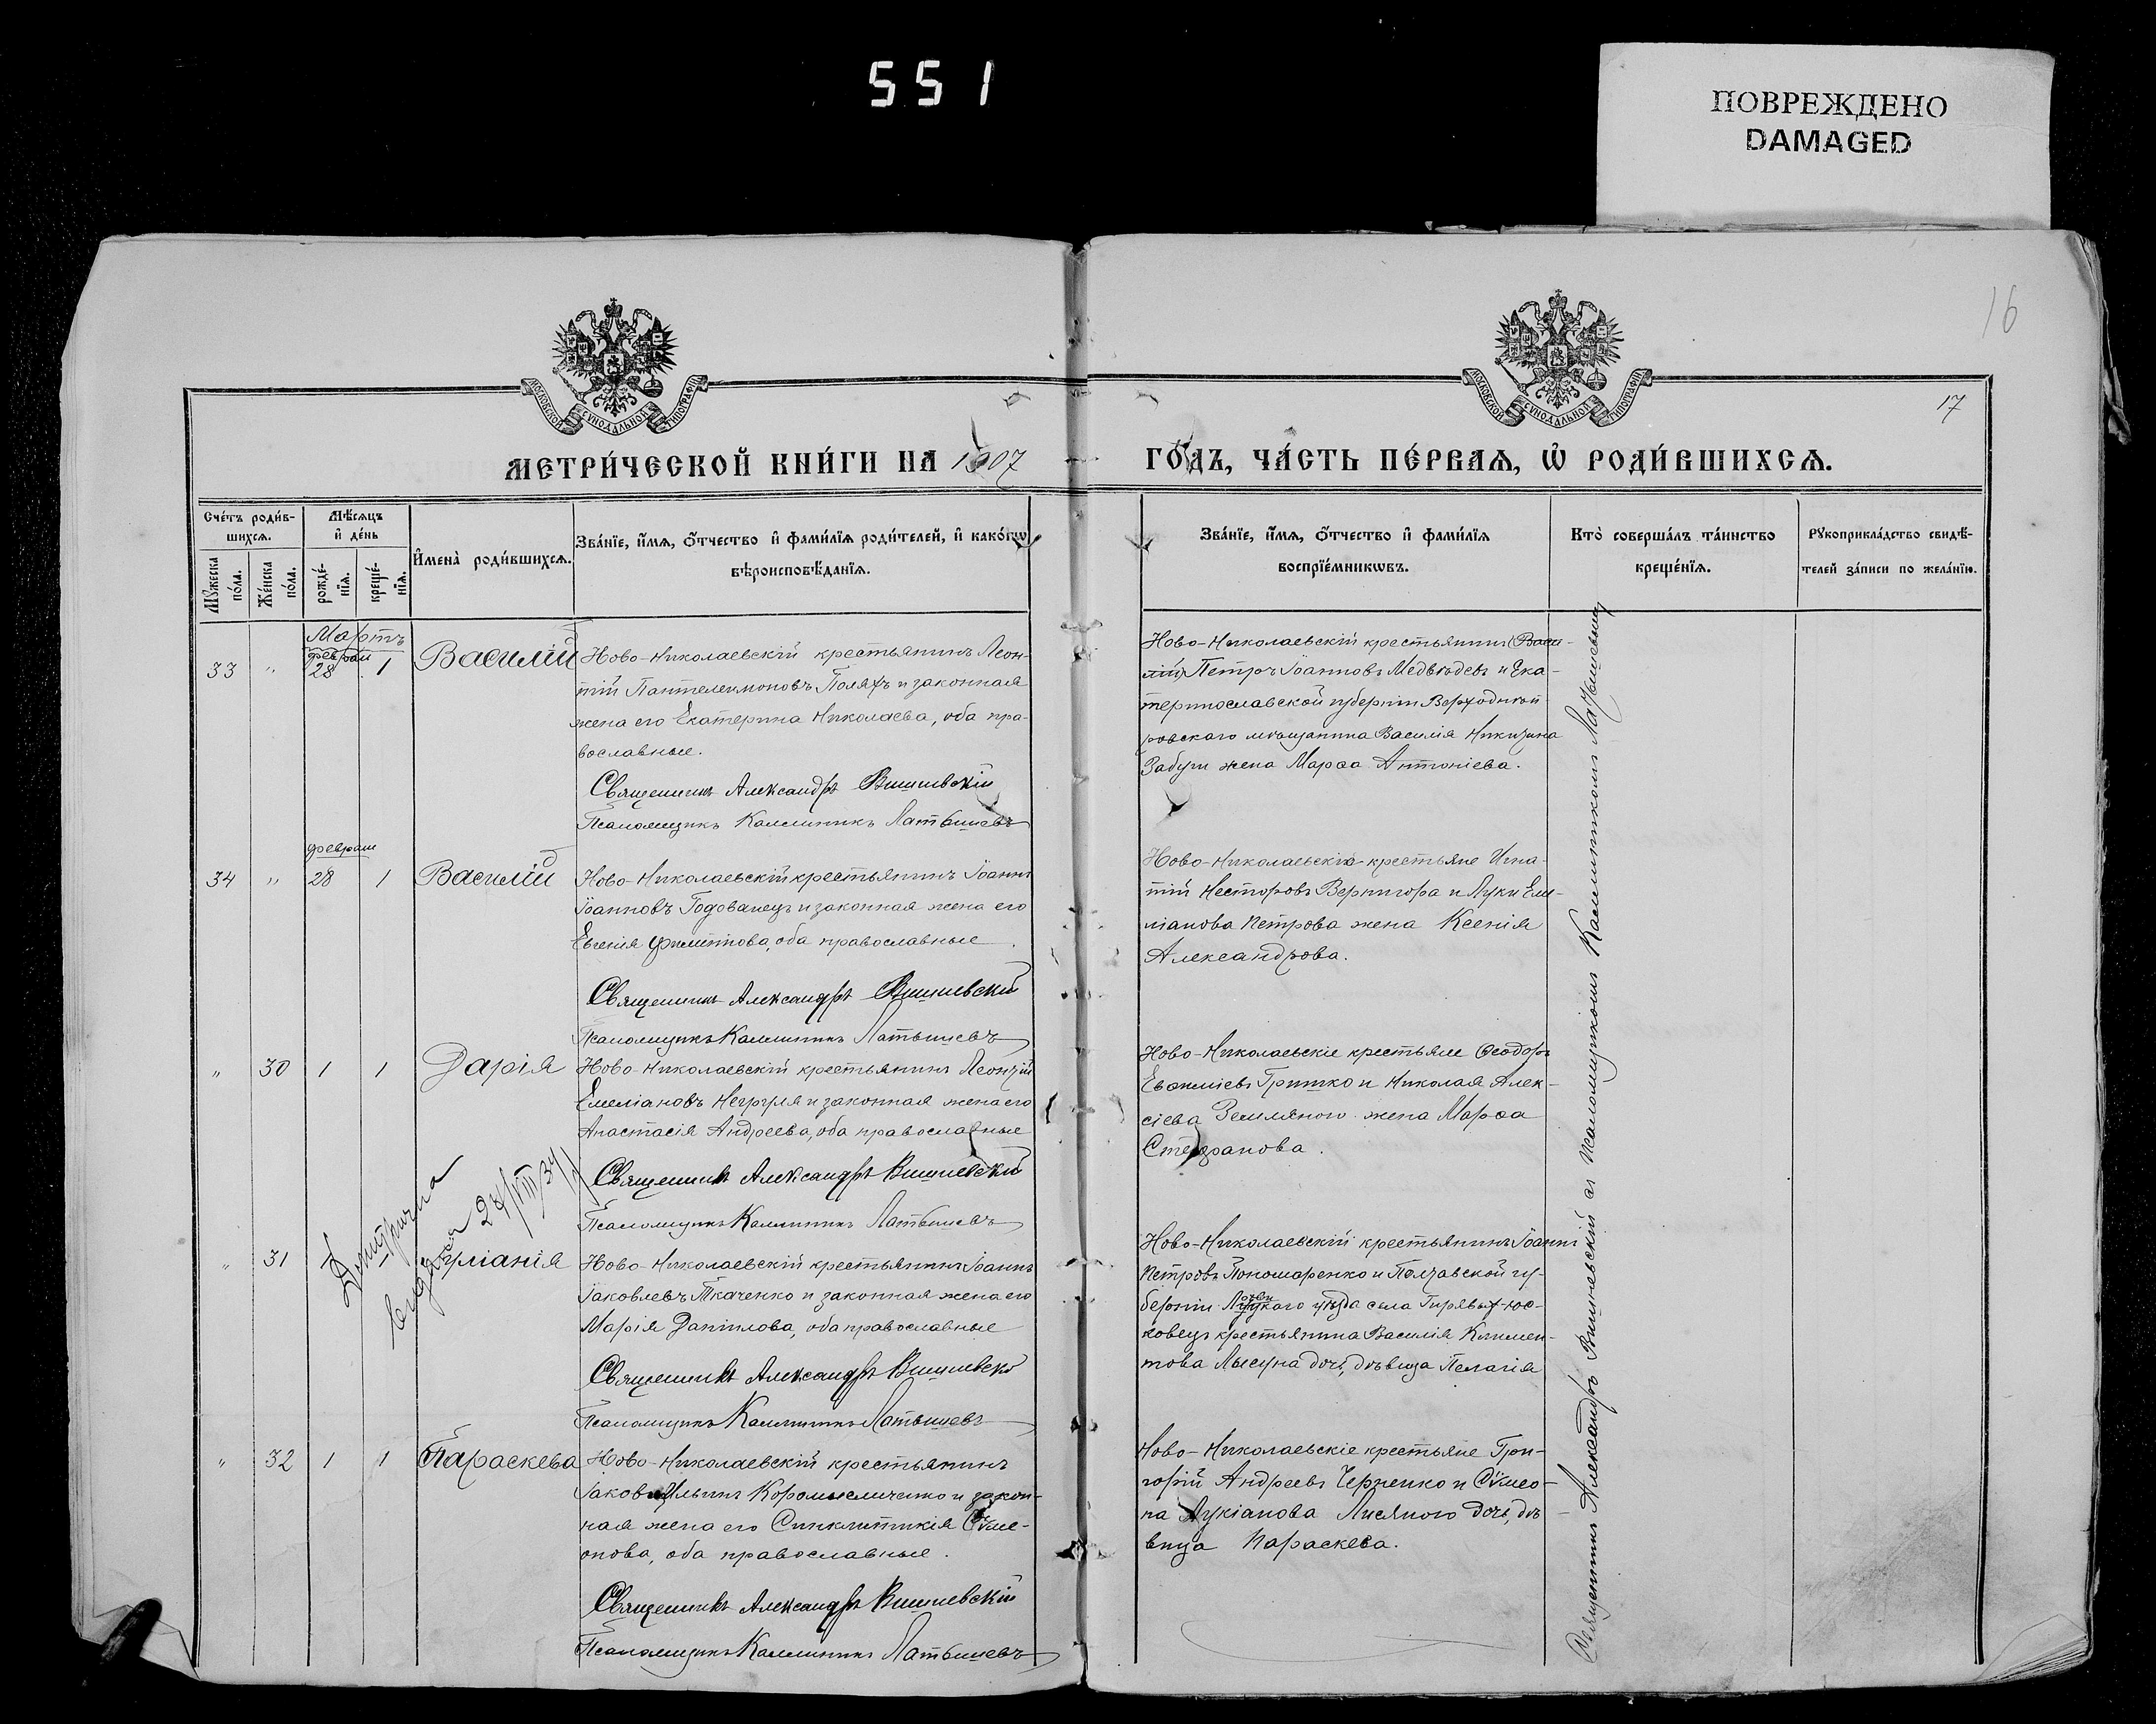 551
ПОВРЕЖДЕНО
DAMAGED
16
17
МОСКОВСКОЙ СѴНОДАЛЬНОЙ ТИПОГРАФІИ
МОСКОВСКОЙ СѴНОДАЛЬНОЙ ТИПОГРАФІИ
МЕТРИ́ЧЕСКОЙ КНИ́ГИ НА 1907 ГО́ДЪ, ЧА́СТЬ ПЕ́РВАѦ, Ѡ҆ РОДИ́ВШИХСѦ.
Сче́тъ роди́в-
шихсѧ.
Мꙋ́жеска по́ла.
Же́нска по́ла.
Мѣ́сѧцъ
и҆ де́нь
рожде́-
нїѧ.
креще́-
нїѧ.
И҆мена̀ роди́вшихсѧ.
Зва́нїе, и҆́мѧ, ѻ҆́тчество и҆ фами́лїѧ роди́телей, и҆ како́гѡ
вѣроисповѣ́данїѧ.
Зва́нїе, и҆́мѧ, ѻ҆́тчество и҆ фами́лїѧ
воспрїе́мникѡвъ.
Кто̀ соверша́лъ та́инство
креще́нїѧ.
Рꙋкоприкла́дство свидѣ́-
телей за́писи по жела́нїю.
Мартъ
феврал
33 " 28 1 Василій
Ново-Николаевскій крестьянинъ Леон-
тій Пантелеимоновъ Поляхъ и законная
жена его Екатерина Николаева, оба пра-
вославные.
Священникъ Александръ Вишневскій
Псаломщикъ Каллиникъ Латышевъ
Ново-Николаевскій крестьянинъ (Васи-
лій) Петръ Іоанновъ Медвѣдевъ и Ека-
теринославской губерніи Верходнѣп-
ровскаго мѣщанина Василія Никитина
Забуги жена Марѳа Антоніева.
феврал
34 " 28 1 Василій
Ново-Николаевскій крестьянинъ Іоаннъ
Іоанновъ Годованецъ и законная жена его
Евгенія Филиппова, оба православные.
Священникъ Александръ Вишневскій
Псаломщикъ Каллиникъ Латышевъ
Ново-Николаевскіе крестьяне Игна-
тій Несторовъ Вернигора и Луки Еми-
ліанова Петрова жена Ксенія
Александрова.
" 30 1 1 Дарія
Ново-Николаевскій крестьянинъ Леонтій
Емеліановъ Негруля и законная жена его
Анастасія Андреева, оба православные
Священникъ Александръ Вишневскій
Псаломщикъ Каллиникъ Латышевъ
Ново-Николаевскіе крестьяне Ѳеодоръ
Евѳиміевъ Гришко и Николая Алек-
сіева Земляного жена Марѳа
Стефанова.
28/VIII/34
" 31 1 Іуліанія
Ново-Николаевскій крестьянинъ Іоаннъ
Іаковлевъ Ткаченко и законная жена его
Марія Даніилова, оба православные
Священникъ Александръ Вишневскій
Псаломщикъ Каллиникъ Латышевъ
Ново-Николаевскій крестьянинъ Іоаннъ
Петровъ Пономаренко и Полтавской гу-
берніи уѣзда села Гирявыхъ-Ис-
ковецъ крестьянина Василія Климен-
това Лысуна дочь, дѣвица Пелагія
" 32 1 1 Параскева
Ново-Николаевскій крестьянинъ
Іаковъ Ильинъ Коромысличенко и закон-
ная жена его Синклитикія Сѵме-
онова, оба православные.
Священникъ Александръ Вишневскій
Псаломщикъ Каллиникъ Латышевъ
Ново-Николаевскіе крестьяне Гри-
горій Андреевъ Черненко и Сѵмео-
на Лукіанова Лисяного дочь, дѣ-
вица Параскева.
Священникъ Александръ Вишневскій съ псаломщикомъ Каллиникомъ Латышевымъ